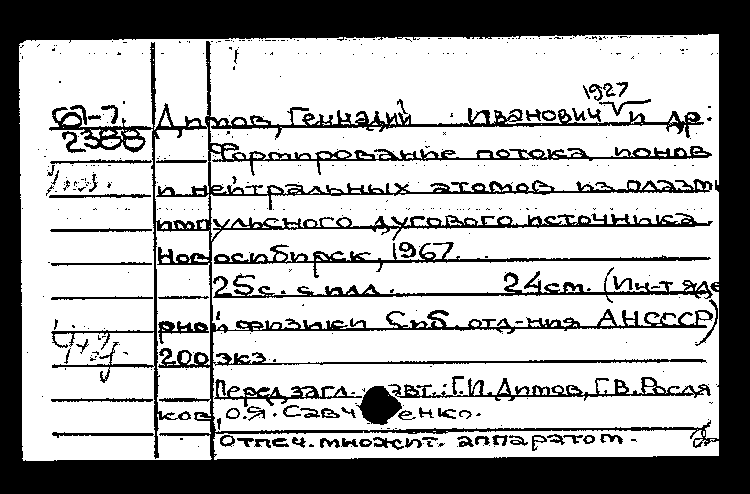 1927
67-7. Димов, Геннадий Иванович и др.:
2388 Формирование потока ионов
и нейтральных атомов из плазм
импульсного дугового источника.
Новосибирск, 1967.
25с. с илл. 24см. (Ин-т яде
рной физики Сиб. отд-ния АН СССР)
200 экз.
Перед загл. авт.: Г.И. Димов, Г.В. Росля
ков, О.Я. Савченко.
Отпеч. множит. аппаратом.